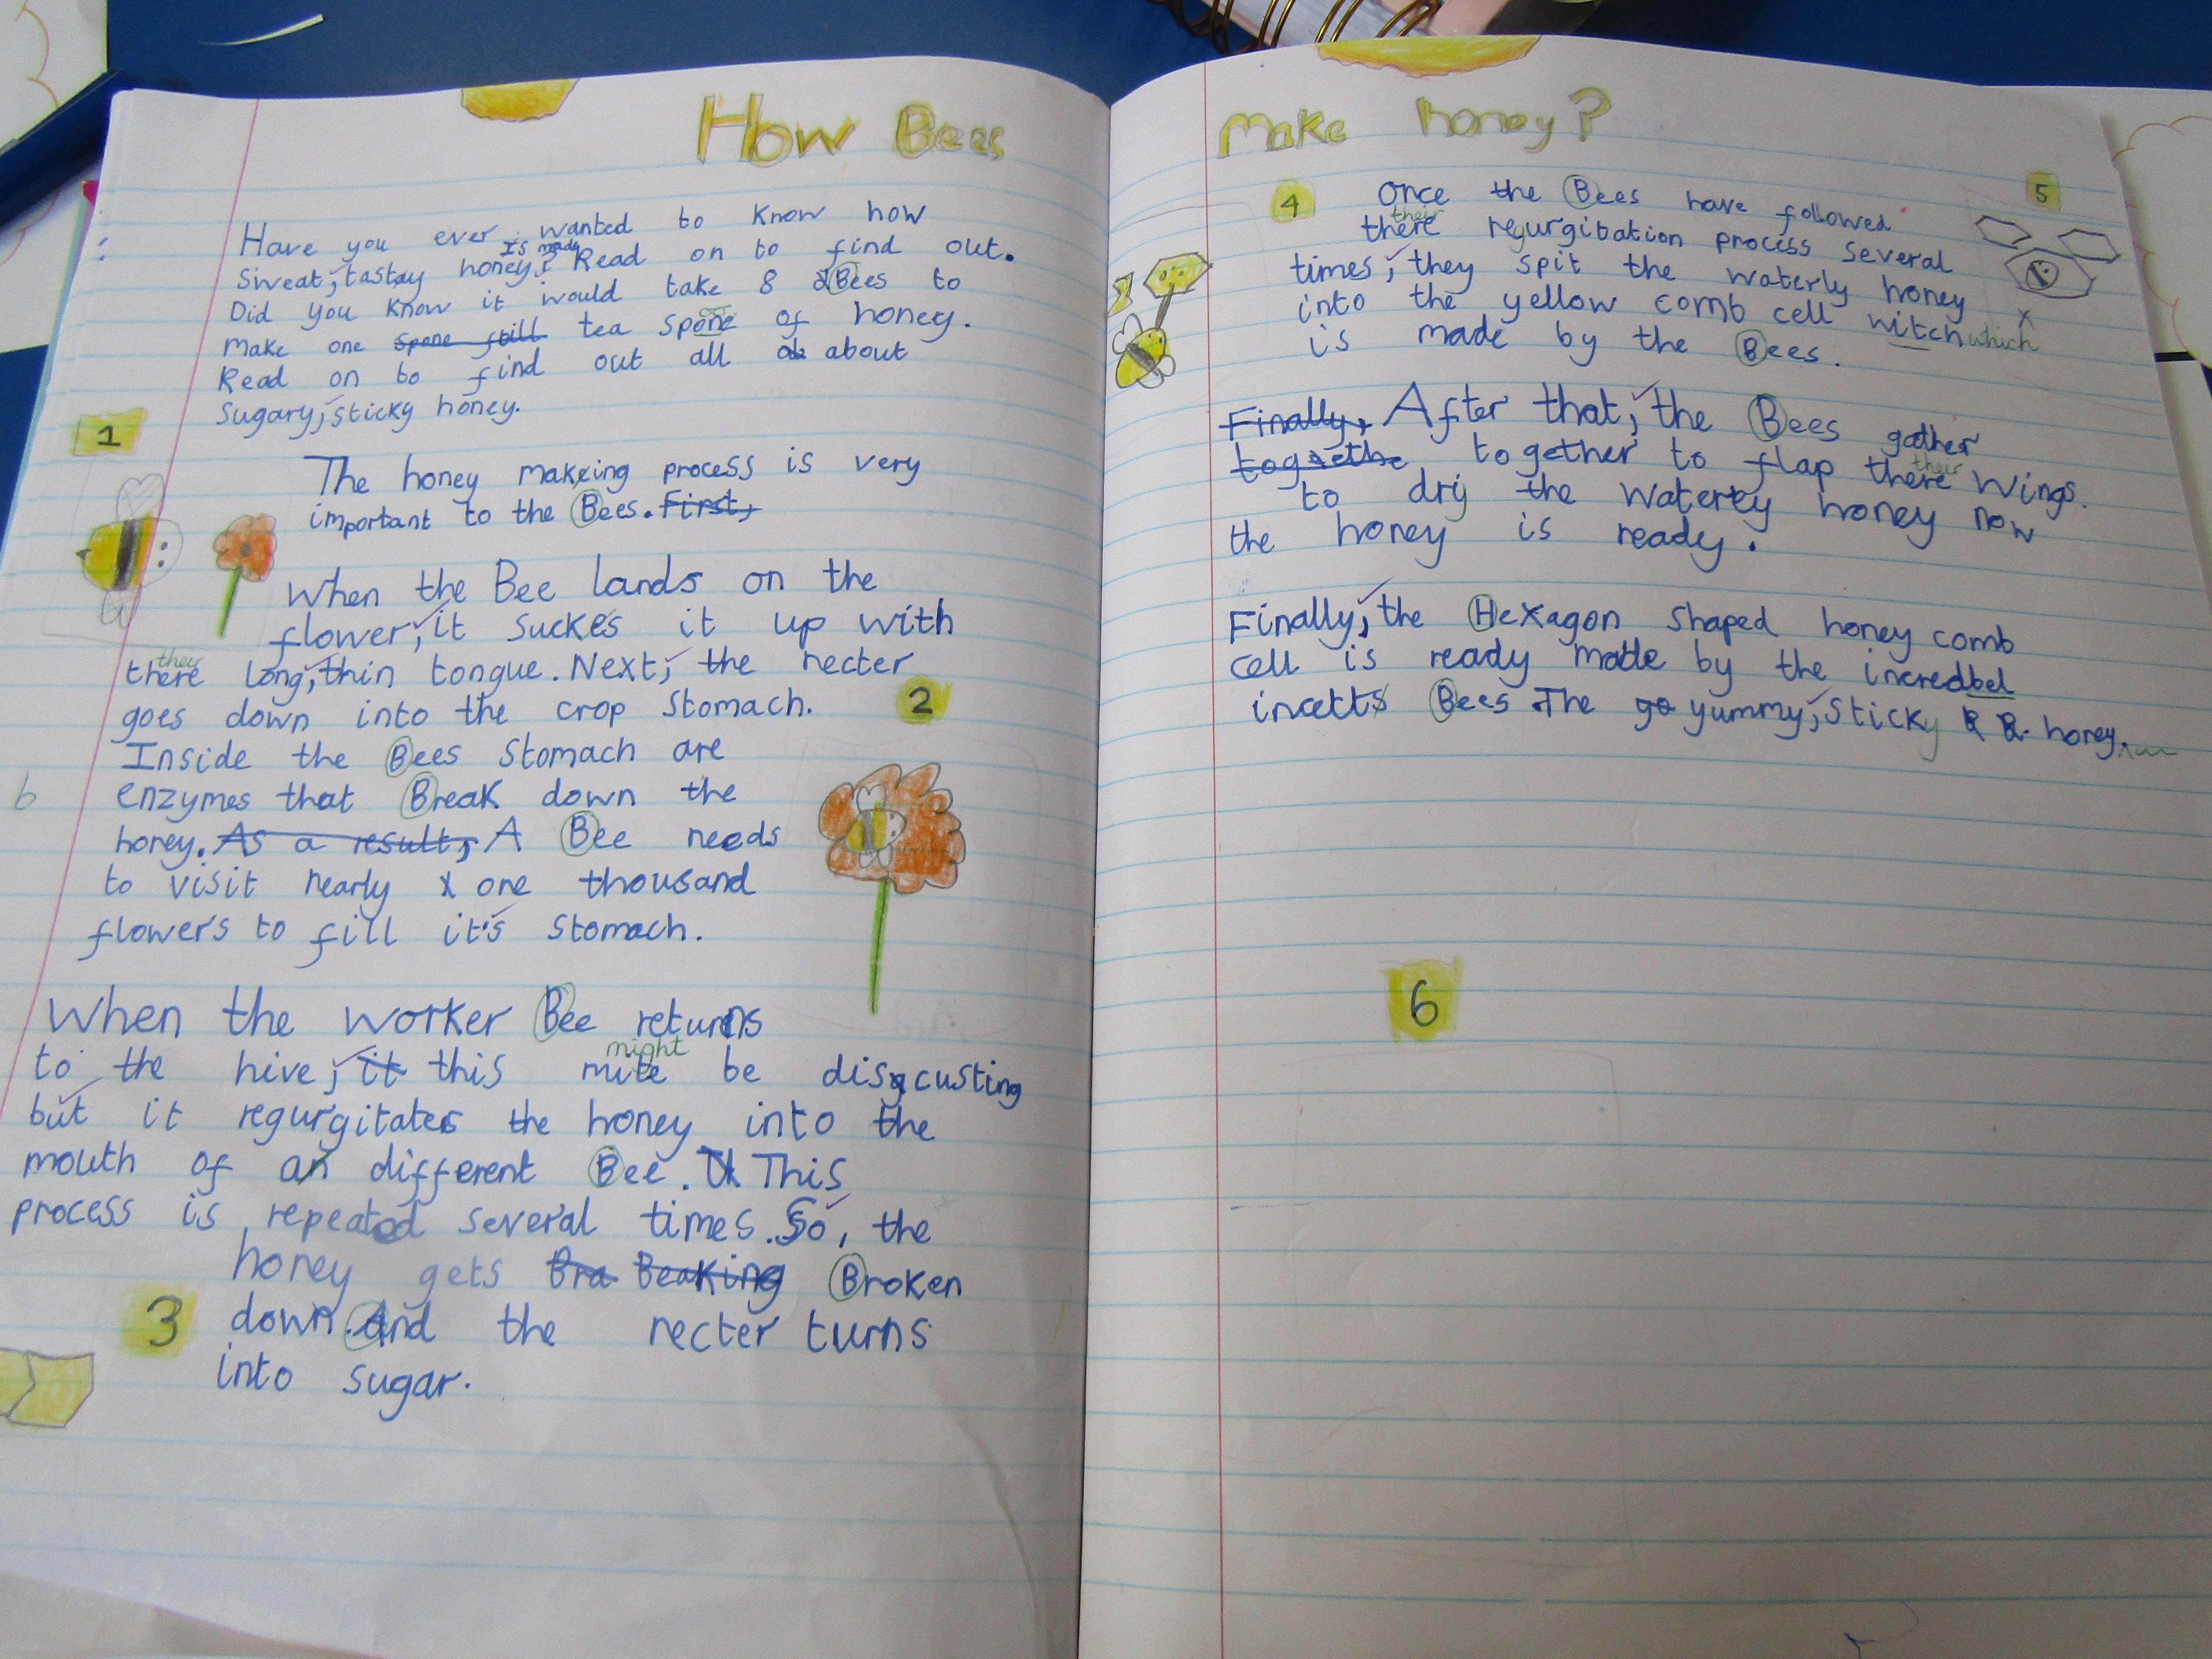 How Bees
Have you ever wanted to know how
Is made
Siweat, tastay honey? Read on to find out.
Did you know it would take 8 Bees to
make one spone full tea spone of honey.
Read on to find out all ab about
sugary, sticky honey.
1
The honey makeing process is very
important to the Bees. First,
When the Bee lands on the
flower, it suckes it up with
their
there long, thin tongue. Next, the necter
goes down into the crop stomach.
2
Inside the Bees stomach are
b
enzymes that Break down the
honey. As a result, A Bee needs
to visit nearly one thousand
flowers to fill it's stomach.
When the worker Bee returns
might
to the hive, it this mite be disgcusting
but it regurgitates the honey into the
mouth of an different Bee. This
process is repeated several times. So, the
honey gets Bra Beaking Broken
3
down. And the necter turns
into sugar.
Make honey?
4
5
Once the Bees have followed
their
there regurgitation process several
times, they spit the waterly honey
into the yellow comb cell witch which
is made by the Bees.
Finally, After that, the Bees gather
togrethe together to flap there wings.
their
to dry the waterey honey now
the honey is ready.
Finally, the Hexagon shaped honey comb
cell is ready made by the incredbel
incetts Bees. The go yummy, sticky honey
6